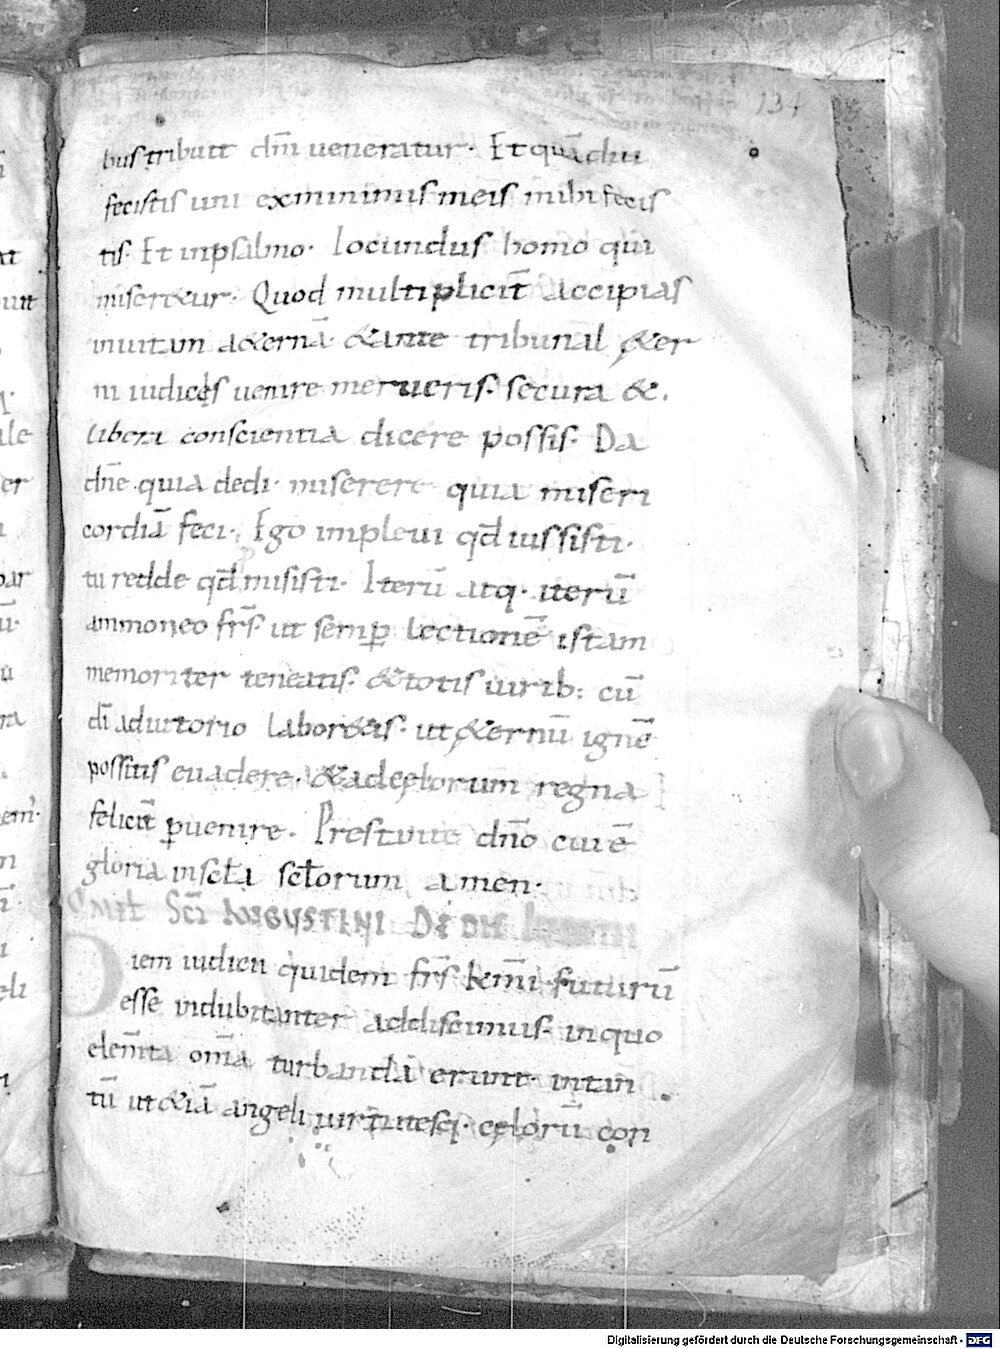 134
bus tribuit dm̄ ueneratur. Et quādiu
fecistis uni ex minimis meis mihi fecis
tis. Et in psalmo. Iocundus homo qui
miseretur. Quod multiplicit̄ accipias
in uitam æternā. & ante tribunal æter
ni iudicis uenire merueris. secura &
libera conscientia dicere possis. Da
dn̄e quia dedi. miserere quia miseri
cordiā feci. Ego impleui qd̄ iussisti.
tu redde qd̄ misisti. Iterū atq. iterū
ammoneo frs̄ ut semp̄ lectionē istam
memoriter teneatis. & totis uirib: cū
dī adiutorio laboretis. ut æternū ignē
possitis euadere. & ad celorum regna
felicit̄ puenire. Prestante dn̄o cui ē
gloria in sc̄la sc̄lorum amen.
Omel Sc̄i AUGUSTINI DE DIE
Diem iudicii quidem frs̄ kmi futurū
esse indubitanter addiscimus. in quo
elem̄ta om̄a turbanda erunt. in tan
tū ut &iā angeli uirtutesq. celorū con
Digitalisierung gefördert durch die Deutsche Forschungsgemeinschaft - DFG